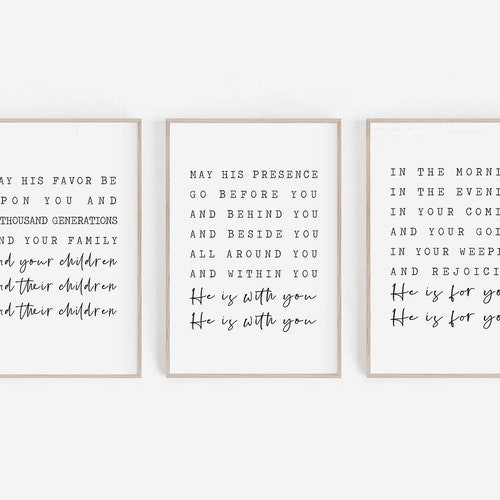 AY HIS FAVOR BE
PON YOU AND
THOUSAND GENERATIONS
ND YOUR FAMILY
nd your children
nd their children
nd their children
MAY HIS PRESENCE
GO BEFORE YOU
AND BEHIND YOU
AND BESIDE YOU
ALL AROUND YOU
AND WITHIN YOU
He is with you
He is with you
IN THE MORNI
IN THE EVENI
IN YOUR COMI
AND YOUR GOI
IN YOUR WEEPI
AND REJOICI
He is for yo
He is for yo